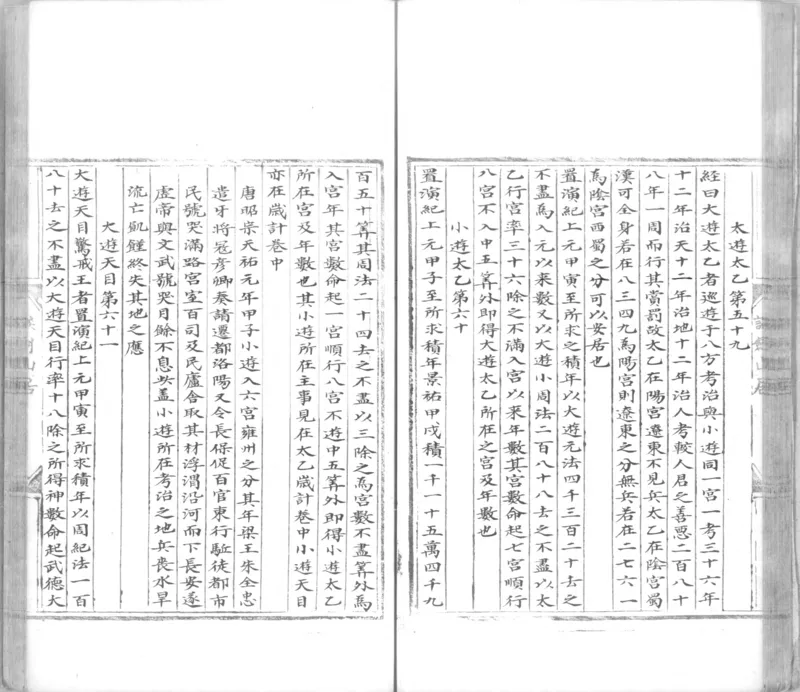 太遊太乙第五十九
經曰大遊太乙者巡遊于八方考治與小遊同一宫一考三十六年
十二年治天十二年治地十二年治人考較人君之善惡二百八十
八年一周而行其賞罰故太乙在陽宫遼東不見兵太乙在陰宫蜀
漢可全身若在八三四九爲陽宫則遼東之分無兵若在二七六一
爲陰宫西蜀之分可以安居也
置演紀上元甲寅至所求之積年以大遊元法四千三百二十去之
不盡爲入元以來數又以大遊小周法二百八十八去之不盡以太
乙行宫率三十六除之不滿入宫以來年數其宫數命起七宫順行
八宫不入中五筭外即得大遊太乙所在之宫及年數也
小遊太乙第六十
置演紀上元甲子至所求積年景祐甲戌積一千一十五萬四千九
百五十筭其周法二十四去之不盡以三除之爲宫數不盡筭外爲
入宫年其宫數命起一宫順行八宫不遊中五筭外即得小遊太乙
所在宫及年數也其小遊所在主事見在太乙歲計卷中小遊天目
亦在歲計卷中
唐昭宗天祐元年甲子小遊入六宫雍州之分其年梁王朱全忠
遣牙將寇彦卿奏請遷都洛陽又令長保促百官東行駈徒都市
民號哭滿路宫室百司及民廬舍取其材浮渭沿河而下長安遂
虚帝與文武號哭月餘不息此盖小遊所在考治之地兵喪水旱
流亡飢饉終失其地之應
大遊天目第六十一
大遊天目驚戒王者置演紀上元甲寅至所求積年以周紀法一百
八十去之不盡以大遊天目行率十八除之所得神數命起武德大